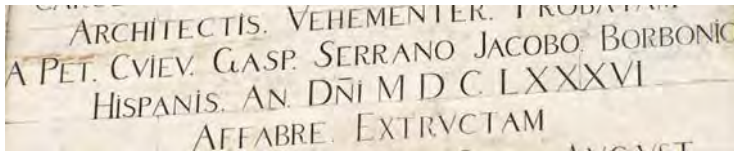 ARCHITECTIS. VEHEMENTER. PROBATAM
A PET. CVIEV. GASP. SERRANO JACOBO. BORBONIC
HISPANIS. AN. DÑi M D C LXXXVI
AFFABRE. EXTRVCTAM